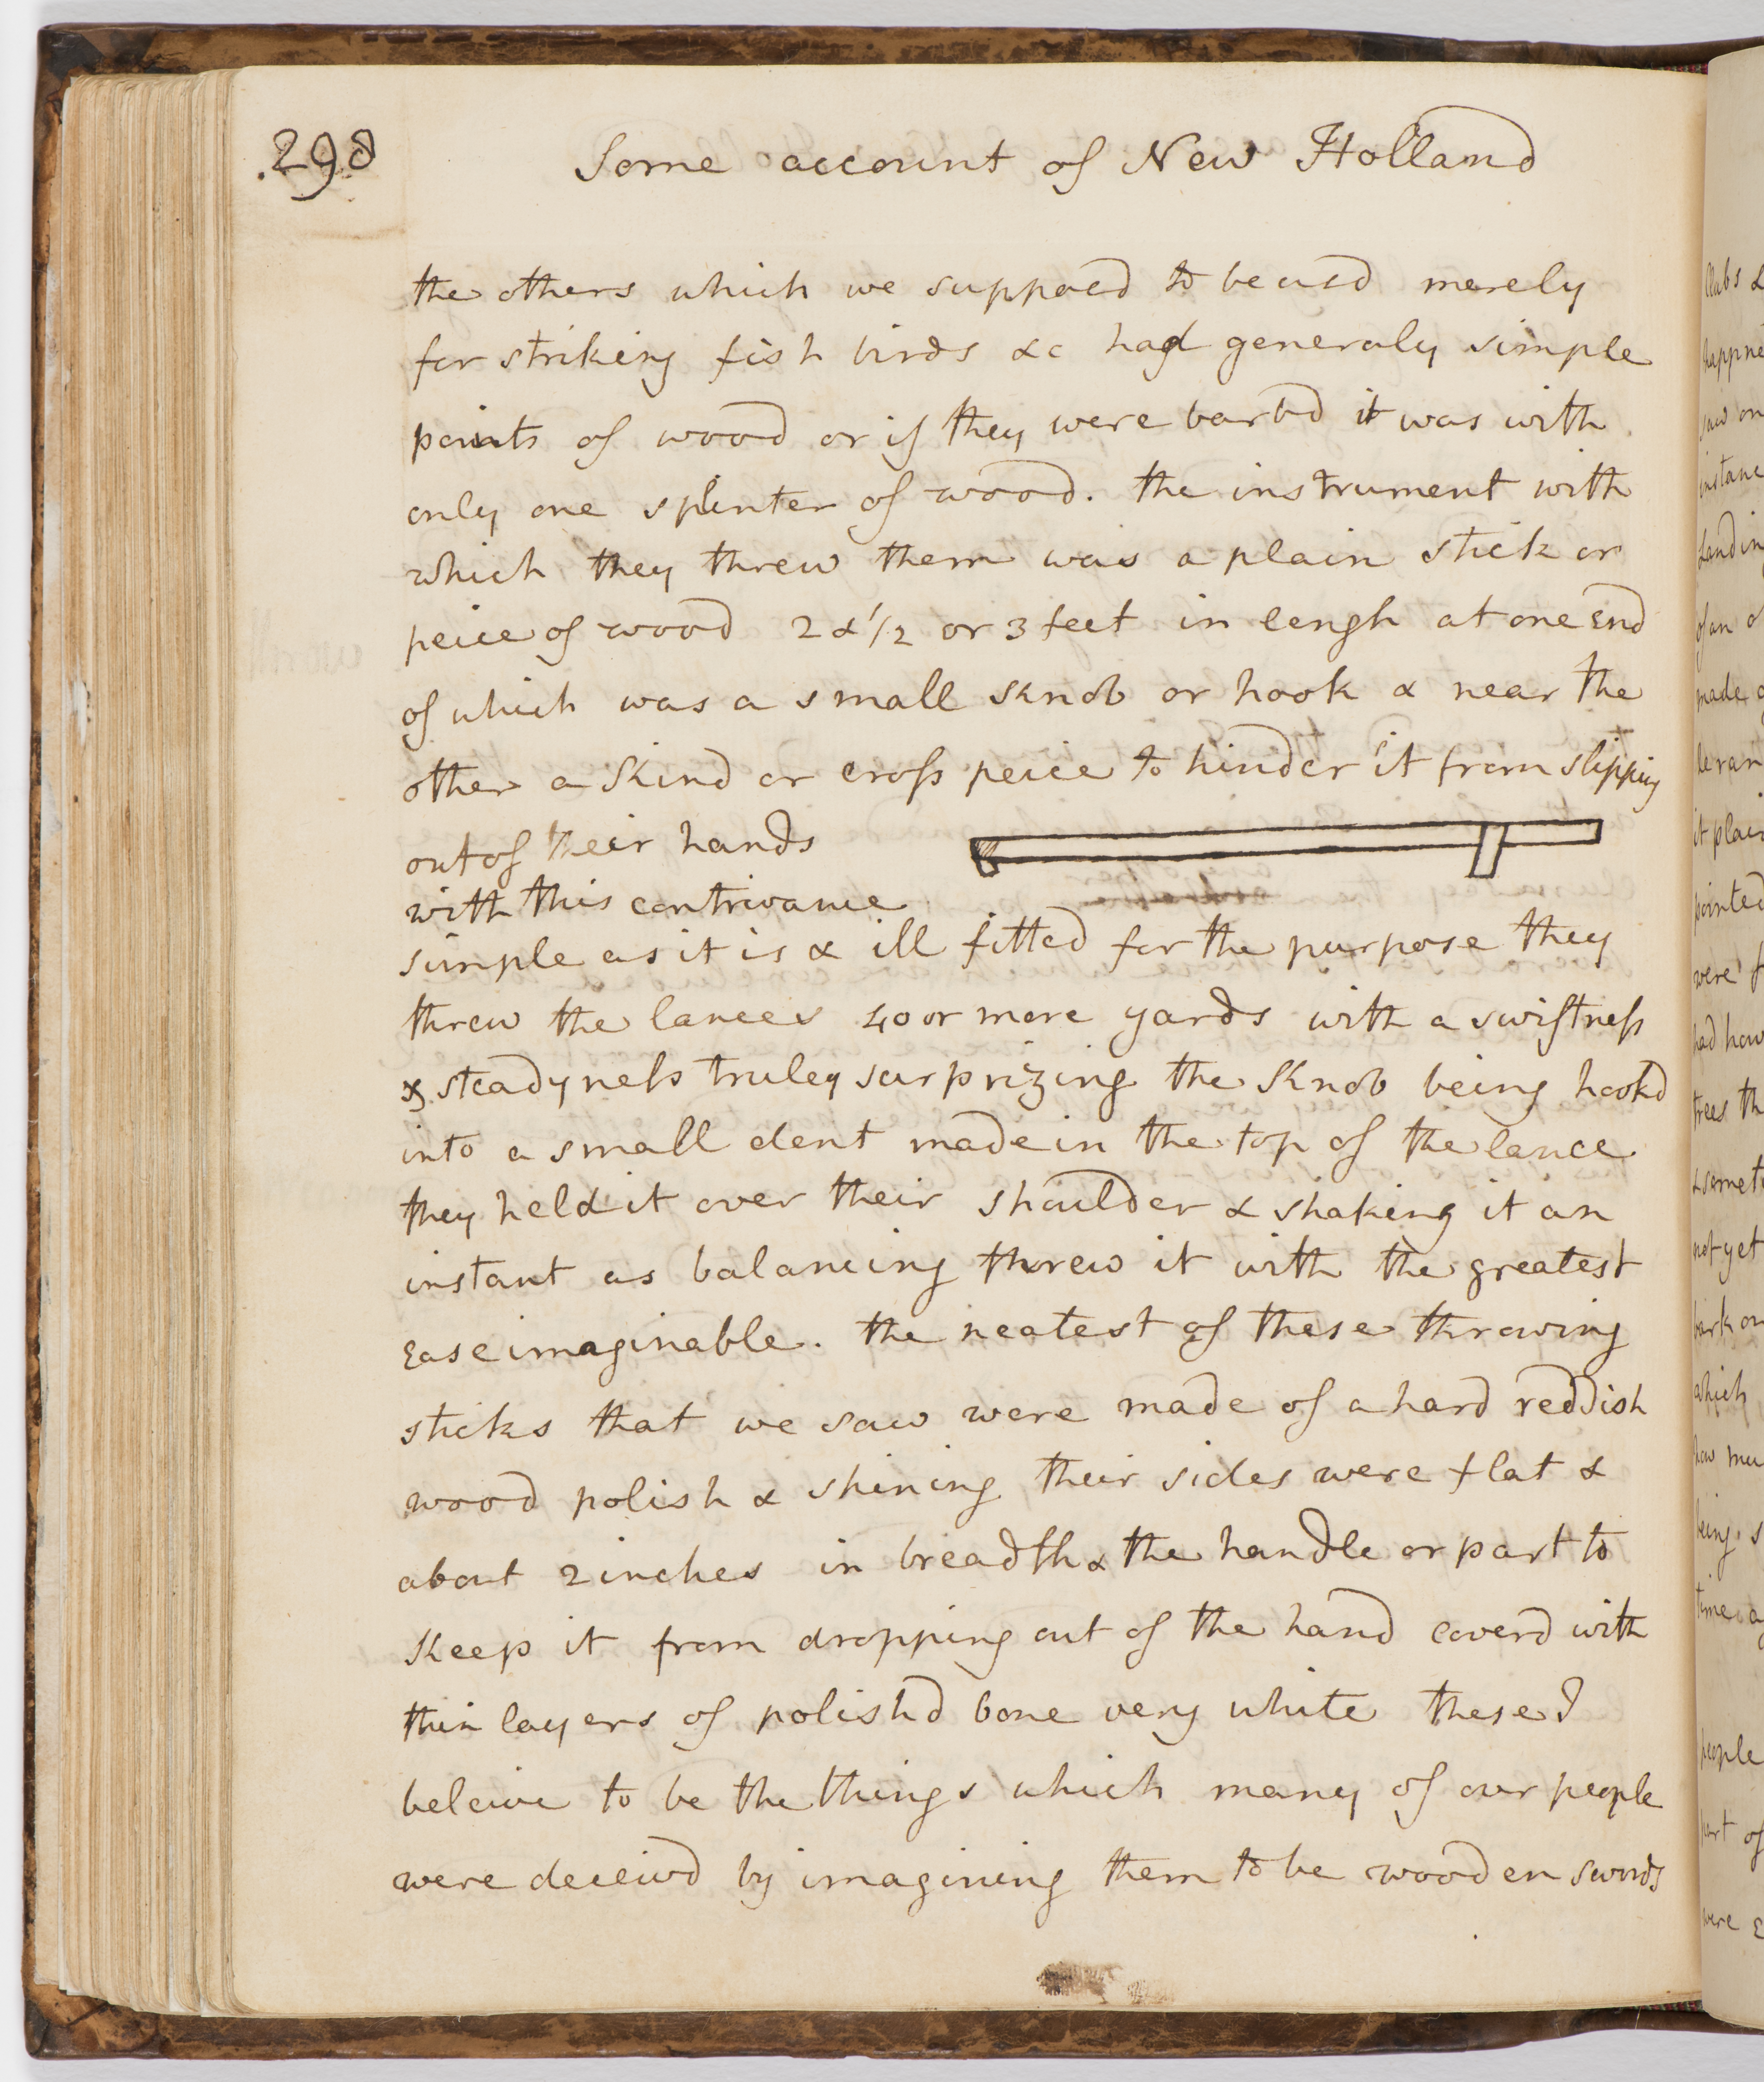 .298
Some account of New Holland
the others which we supposd to be usd merely
for striking fish birds &c had generaly simple
points of wood or if they were barbd it was with
only one splinter of wood. the instrument with
which they threw them was a plain stick or
peice of wood 2 & 1/2 or 3 feet in lengh at one End
of which was a small Knob or hook & near the
other a Kind or cross peice to hinder it from slipping
out of their hands
with this contrivance
simple as it is & ill fitted for the purpose they
threw the lances 40 or more yards with a swiftness
& steadyness truley surprizing the Knob being hookd
into a small dent made in the top of the lance
they held it over their shoulder & shaking it an
instant as balancing threw it with the greatest
Ease imaginable. the neatest of these throwing
sticks that we saw were made of a hard reddish
wood polish & shining their sides were flat &
about 2 inches in breadth & the handle or part to
Keep it from dropping out of the hand coverd with
thin layers of polishd bone very white these I
beleive to be the things which many of our people
were deceivd by imagining them to be wooden swords